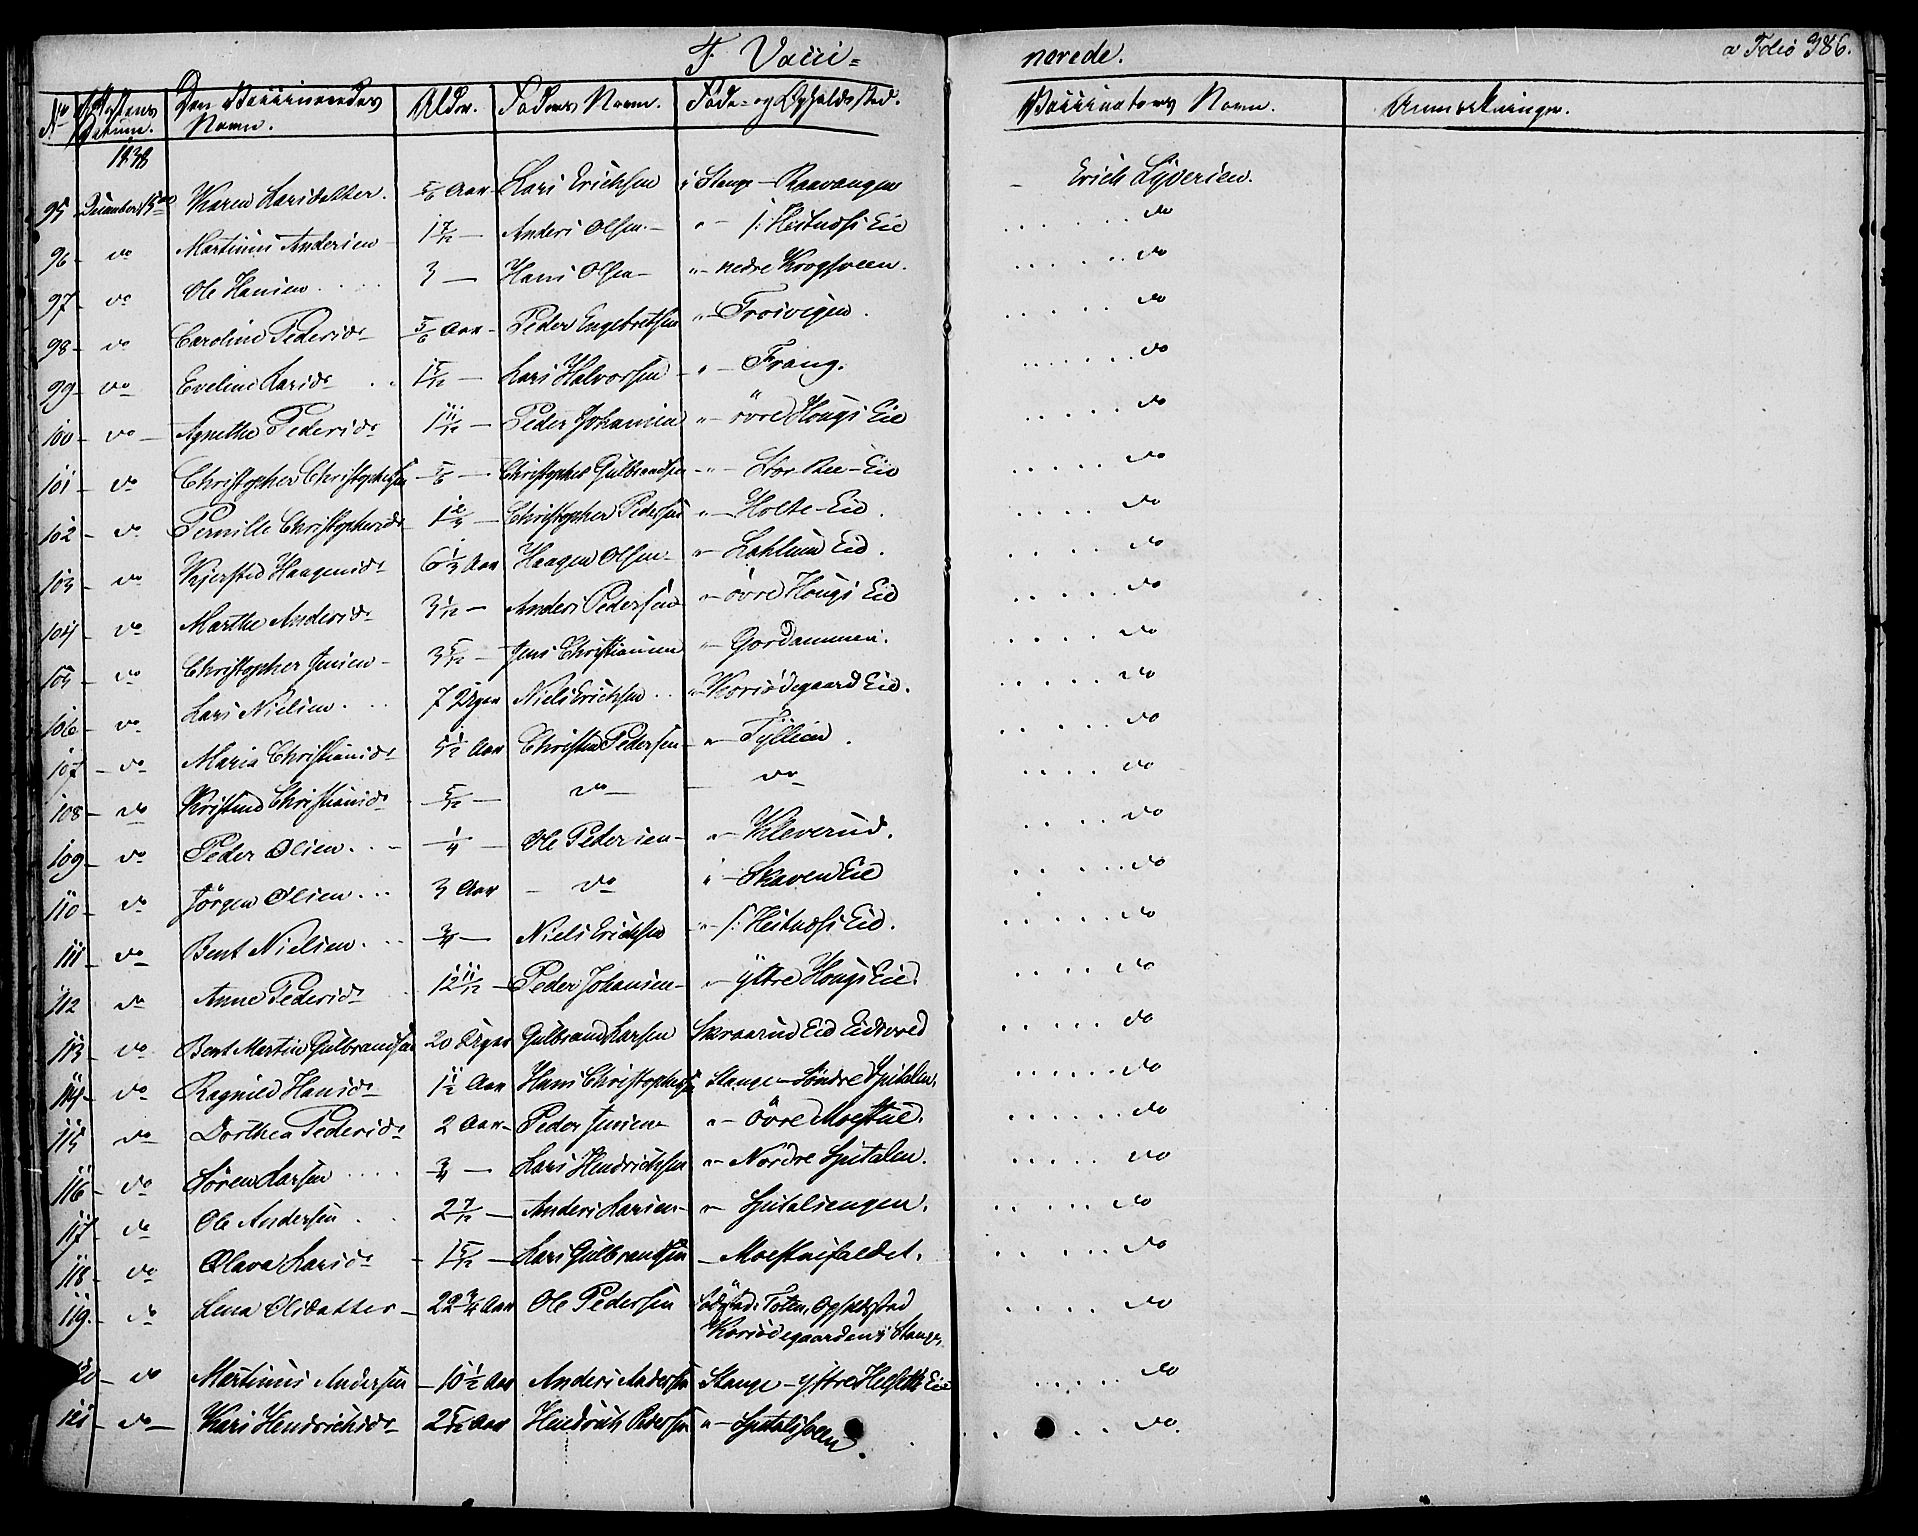 F. Vacci=
nerede.
a Folio 386.
No Attestens Datum. Den Vaccineredes Navn. Alder. Faders Navn. Føde- og Opholdssted. Vaccinateurs Navn. Anmærkninger.
1838
95 December 15de Karen Larsdatter. 5/6 Aar Lars Erichsen i Stange - Raavangen - Erich Syversen.
96 - do Martinus Andersen 1 7/12 - Anders Olsen - " - s: Huseby Eie do
97 - do Ole Hansen 3 - Hans Olsen - " - nedre Krogsveen. do
98 - do Caroline Pedersdr 5/6 Aar - Peder Engebretsen " - Frøivigen. do
99 - do Eveline Larsdr 1 5/12 - Lars Halvorsen - " - Frang. do
100 - do - Agnethe Pedersdr 1 11/12 - Peder Johansen " - øvre Hougs Eie do
101 - do Christopher Christophersen 5/6 - Christopher Gulbrandsen - " - Stor Ree - Eie do
102 - do Pernille Christophersdr 1 2/3 - Christopher Pedersen " - Holte - Eie. do
103 - do Kjersted Haagensdr 6 1/3 Aar Haagen Olsen - " - Lahlum Eie. do
104 - do Marthe Andersdr 3 1/12 - Anders Pedersen " - øvre Hougs Eie do
105 - do Christopher Jensen - 3 5/12 - Jens Christiansen " - Gordammen. do
106 - do Lars Nielsen. 7 Uger Niels Erichsen " Korsødegaard Eie. do
107 - do Maria Christiansdr 5 1/2 Aar Christen Pedersen - " - Tyllien. do
108 - do Kristine Christiansdr 5/12 - do - do do
109 - do Peder Olsen. 1/4 - Ole Pedersen - " - Kleverud. do
110 - do Jørgen Olsen 3 Aar - do " - Skaven Eie do
111 - do Bent Nielsen. 3/4 - Niels Erichsen " - s: Huseby Eie. do
112 - do Anne Pedersdr 12 11/12 - Peder Johansen - " - yttre Hougs Eie. do
113 - do Bent Martin Gulbrandsen 20 Uger Gulbrand Larsen Skraarud Eie Eidsvold do
114 - do Ragnild Hansdr 1 1/2 Aar Hans Christophersen Stange - Søndre Spitalen. do
115 do Dorthea Pedersdr 2 Aar - Peder Jensen " - Øvre Moestue. do
116 - do Søren Larsen 3/4 - Lars Hendrichsen " - Nordre Spitalen. do
117 - do Ole Andersen 2 7/12 - Anders Larsen - " - Spitalsengen. do
118 - do Olava Larsdr - 1 5/12 - Lars Gulbrandsen - Moestuefaldet. do
119. - do Lena Olsdatter - 22 3/4 Aar Ole Pedersen Fødested: Toten, Opholdsted do
Korsødegaarden i Stange.
120 - do Martinus Andersen - 10 1/2 Aar Anders Andersen Stange - yttre Helset Eie do
121 - do - Kari Hendrichsdr 2 5/12 Aar Hendrich Pedersen " - Spitalsveen. do.